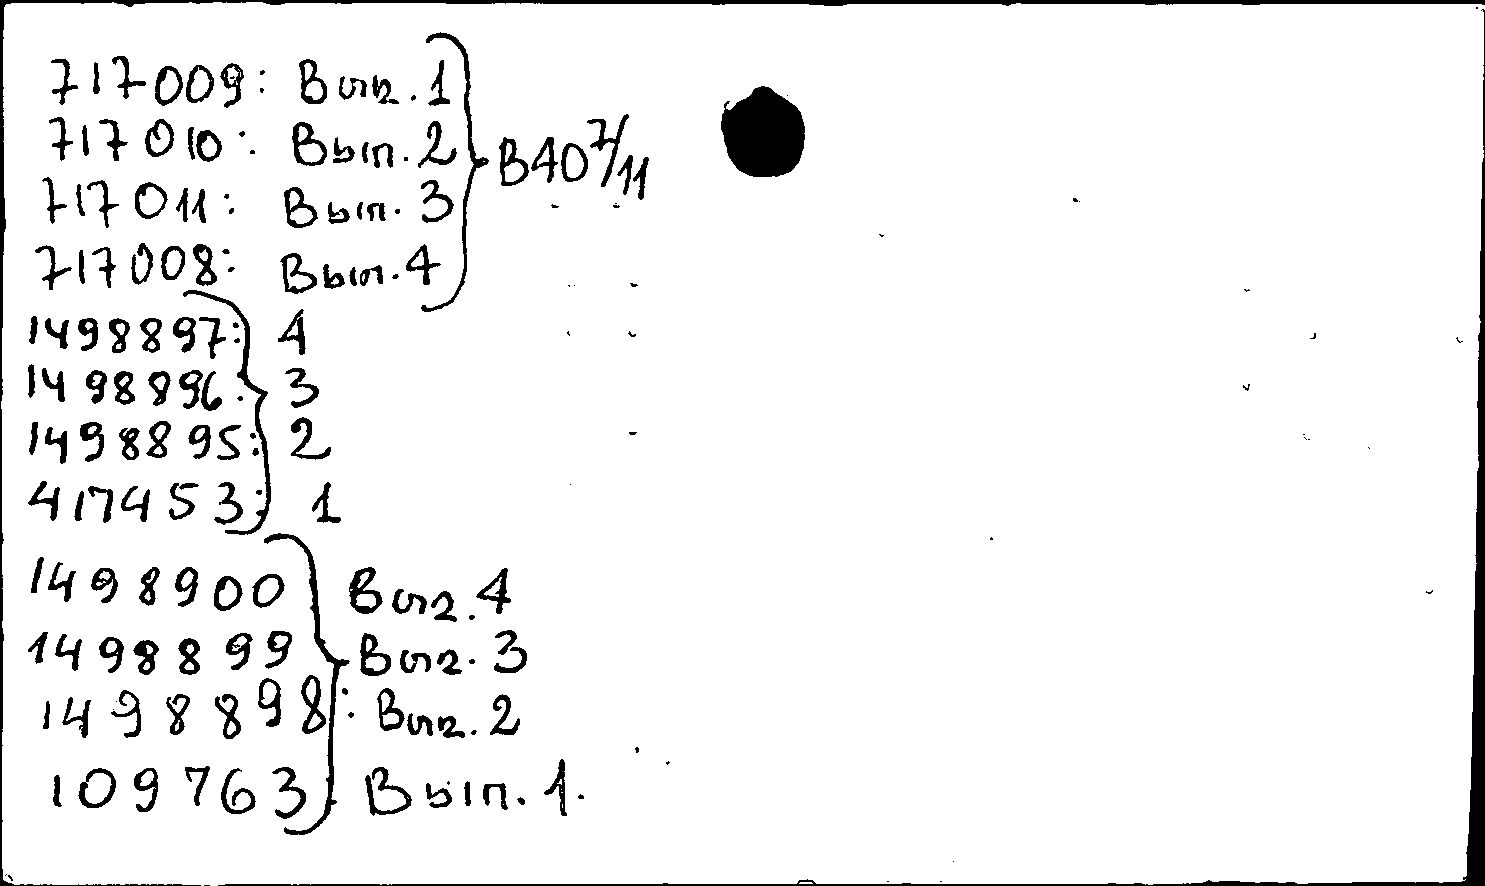 717009: Вып. 1
717010: Вып. 2
717011: Вып. 3
717008: Вып. 4
В40 7/11
1498897: 4
1498896: 3
1498895: 2
417453: 1
1498900 Вып. 4
1498899 Вып. 3
1498898: Вып. 2
109763: Вып. 1.